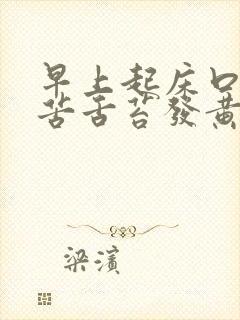 早上起床口
苦舌苔發黃
梁濱